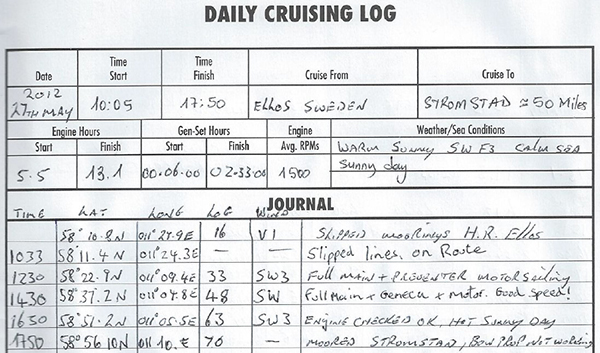 DAILY CRUISING LOG
Date Time Start Time Finish Cruise From Cruise To
2012 27TH MAY 10:05 17:50 Ellos SWEDEN STROMSTAD ≈ 50 Miles
Engine Hours Gen-Set Hours Engine Weather/Sea Conditions
Start Finish Start Finish Avg. RPMs WARM SUNNY SW F3 CALM SEA
5.5 13.1 00:06:00 02:33:00 1500 Sunny day
JOURNAL
TIME LAT LONG LOG WIND
58° 10.8N 011° 27.9E 16 V1 Slipped moorings H.R. Ellos
1033 58° 11.4N 011° 24.3E — — Slipped lines, on Route
1230 58° 22.9N 011° 09.4E 33 SW3 Full MAIN + PREVENTER MOTOR Sailing
1430 58° 37.2N 011° 07.8E 48 SW Full Main + Geneca + Motor. Good Speed!
1630 58° 51.2N 011° 05.5E 63 SW3 ENGINE CHECKED OK, HOT SUNNY DAY
1750 58° 56.10N 011 10.E 70 — MOORED STROMSTAD, BOW PROP NOT WORKING